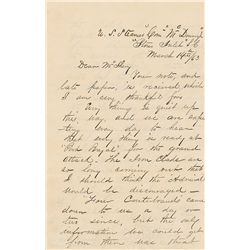 U.S. Steamer "Gen'l
"Stono Inlet" S.C.
March 14th/63
Dear
Your note, and
late papers, is received, which
I am very thankful for.
Any thing is quiet up
this way, and we are expec-
ting every day to hear
that every thing is ready at
"Port Royal" for the grand
attack. The Iron Clads are
so long coming out that
I should think the Admiral
would be discouraged —
Four Contrabands came
down to us a day or
two since, But the only
information we could get
from them was that